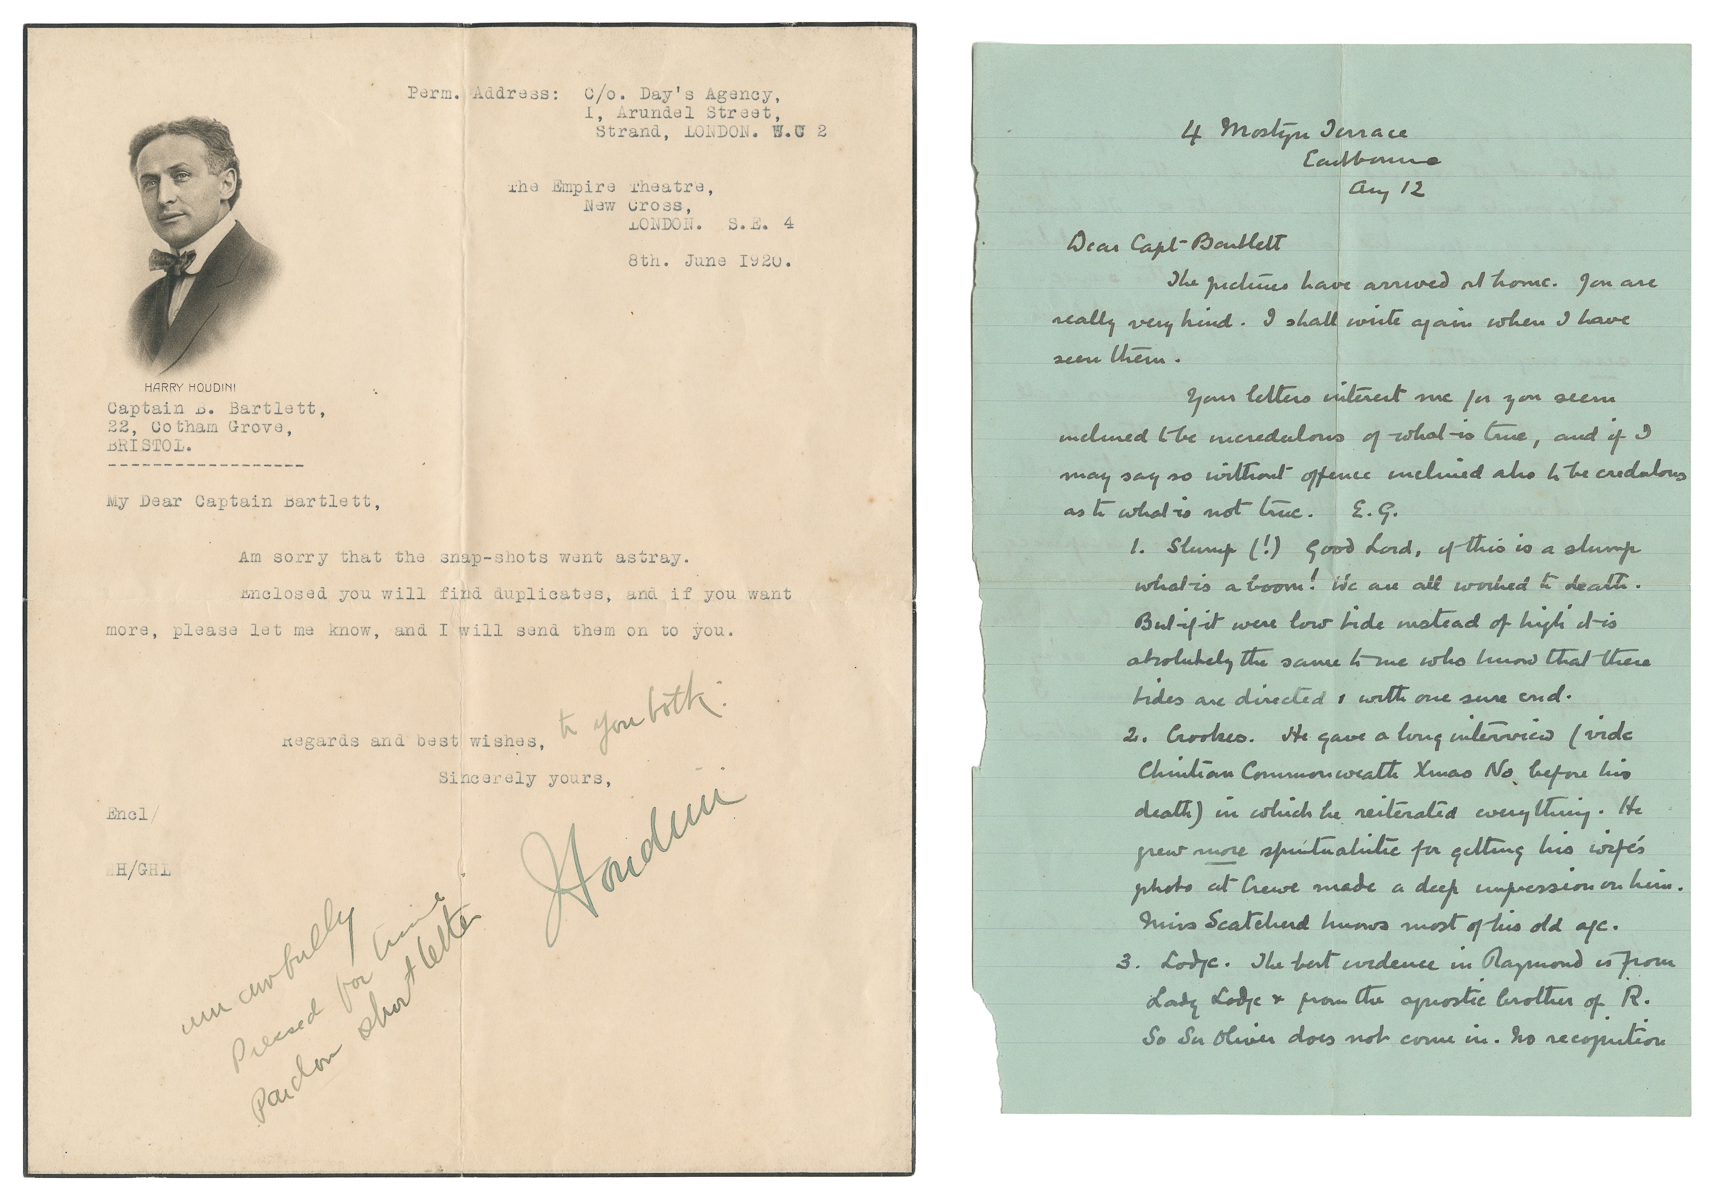 Perm. Address: C/o. Day's Agency,
1, Arundel Street,
Strand, LONDON. W.C 2
The Empire Theatre,
New Cross,
LONDON. S.E. 4
8th. June 1920.
HARRY HOUDINI
Captain B. Bartlett,
22, Cotham Grove,
BRISTOL.
------------------
My Dear Captain Bartlett,
Am sorry that the snap-shots went astray.
Enclosed you will find duplicates, and if you want
more, please let me know, and I will send them on to you.
Regards and best wishes, to you both.
Sincerely yours,
Houdini
Encl/
HH/GHL
am awfully
pressed for time
Pardon short letter
4 Mostyn Terrace
Eastbourne
Aug 12
Dear Capt Bartlett
The pictures have arrived at home. You are
really very kind. I shall write again when I have
seen them.
Your letters interest me for you seem
inclined to be incredulous of what is true, and if I
may say so without offence inclined also to be credulous
as to what is not true. E.G.
1. Slump (!) Good Lord, if this is a slump
what is a boom! We are all worked to death.
But if it were low tide instead of high it is
absolutely the same to me who know that these
tides are directed & with one sure end.
2. Crookes. He gave a long interview (vide
Christian Commonwealth Xmas No before his
death) in which he reiterated everything. He
grew more spiritualistic for getting his wife's
photo at Crewe made a deep impression on him.
Miss Scatcherd knows most of his old age.
3. Lodge. The best evidence in Raymond is from
Lady Lodge & from the agnostic brother of R.
So Sir Oliver does not come in. No recognition